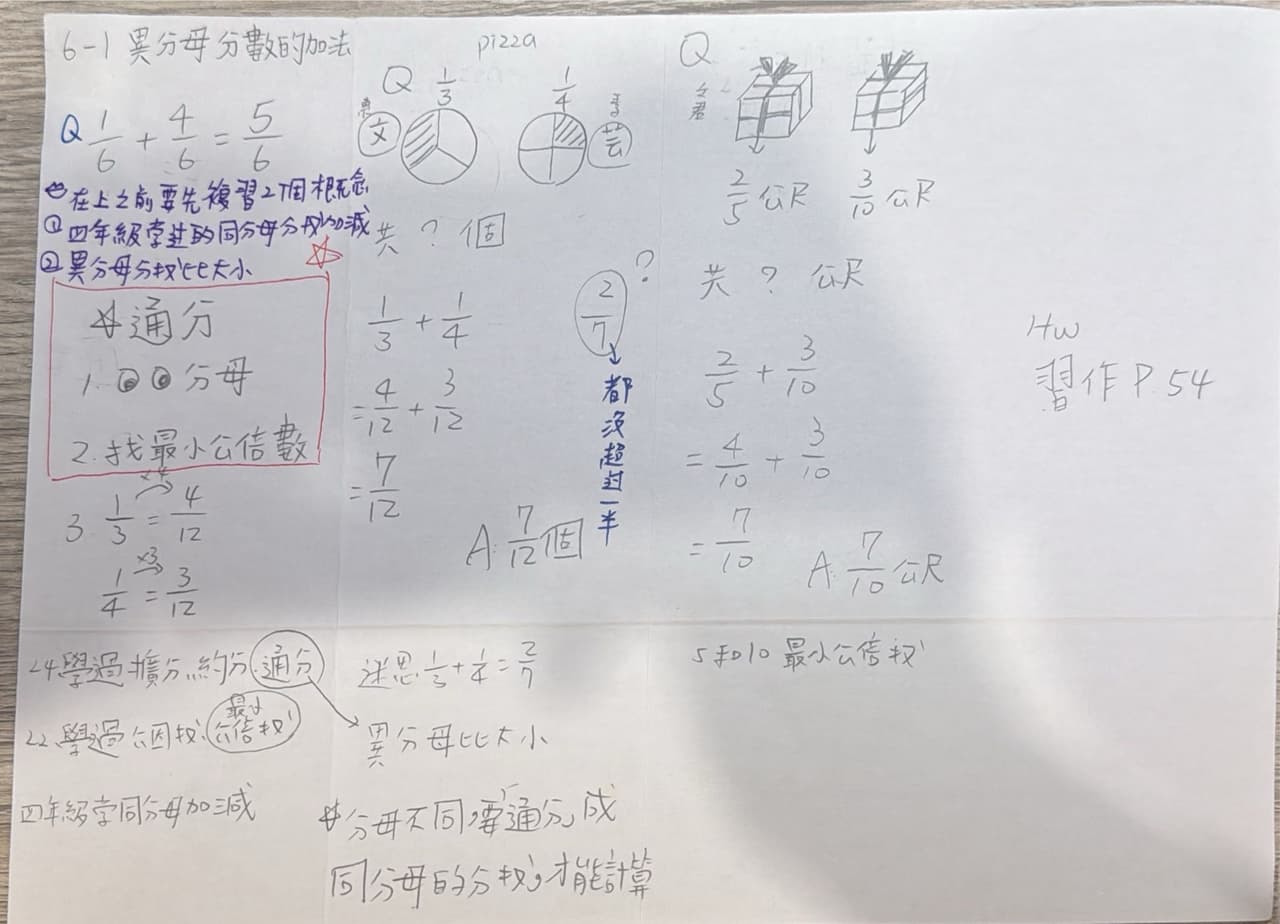 6-1 異分母分數的加法
Q 1/6 + 4/6 = 5/6
在上之前要先複習2個概念
① 四年級學過的同分母分数加減
② 異分母分数比大小
☆通分
1. 分母
2. 找最小公倍數
3. 1/3 = 4/12
×4
1/4 = 3/12
×3
L4.學過擴分.約分.通分
L2.學過公因数.最小公倍数
四年級学同分母加減
pizza
Q 1/3 1/4
文 芸
共 ? 個
1/3 + 1/4
= 4/12 + 3/12
= 7/12
A: 7/12個
2/7 ?
都沒超过一半
迷思 1/3 + 1/4 = 2/7
異分母比大小
☆分母不同,要「通分」成
同分母的分数,才能計算
Q
2/5 公尺 3/10 公尺
共 ? 公尺
2/5 + 3/10
= 4/10 + 3/10
= 7/10
A: 7/10 公尺
5和10 最小公倍数
HW
習作 P.54